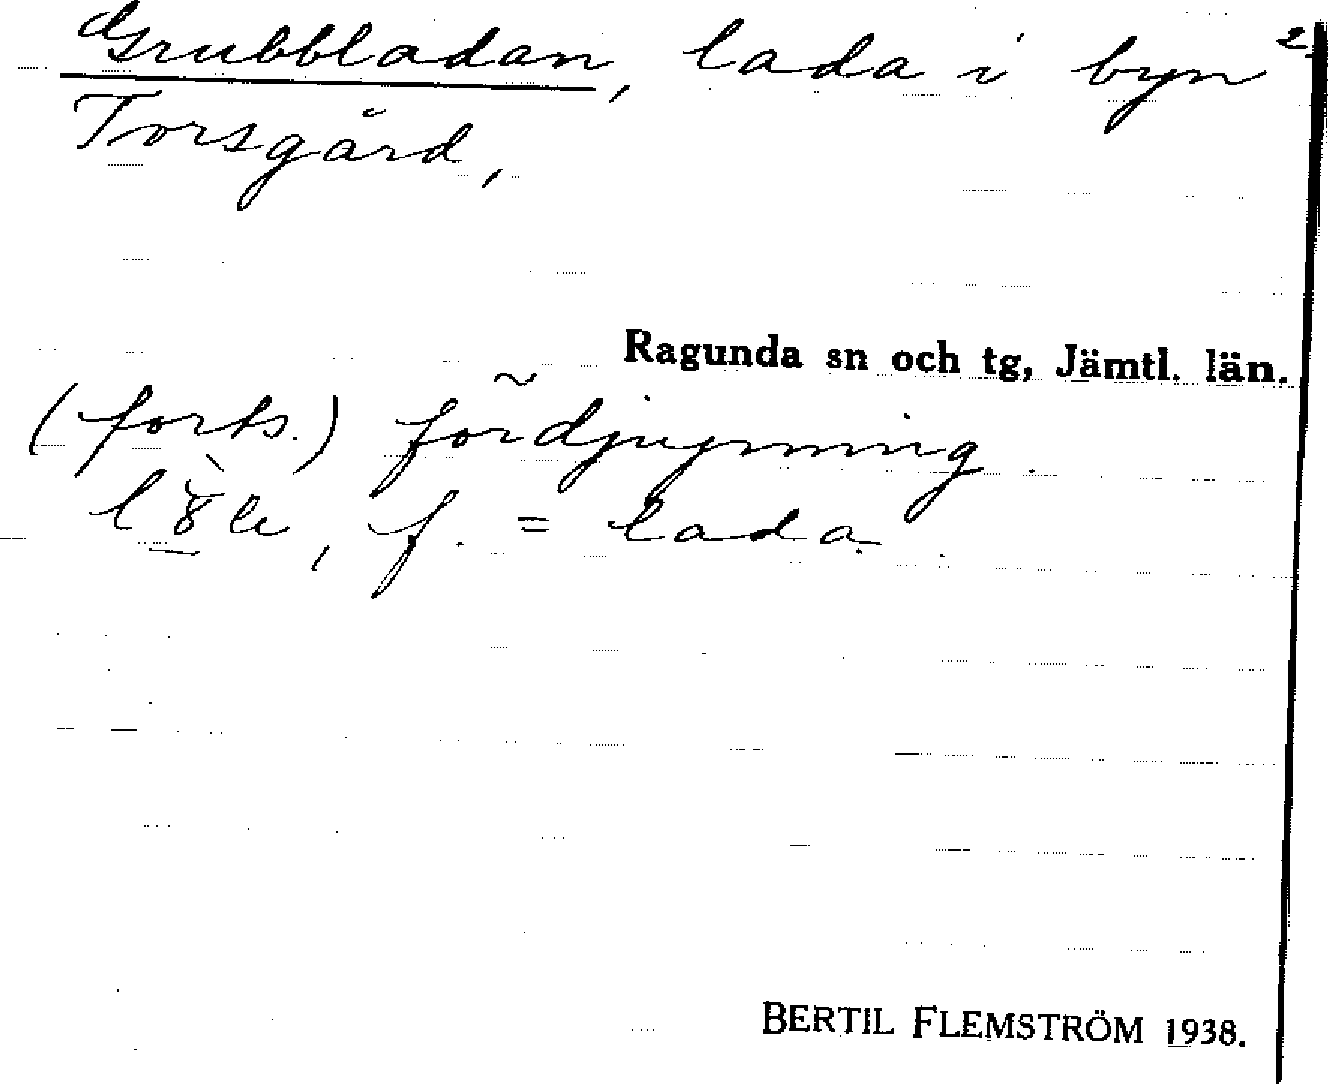 Grubbladan, lada i byn 2
Torsgård,
Ragunda sn och tg, Jämtl. län.
(forts.) fördjupning.
f. = lada.
BERTIL FLEMSTRÖM 1938.